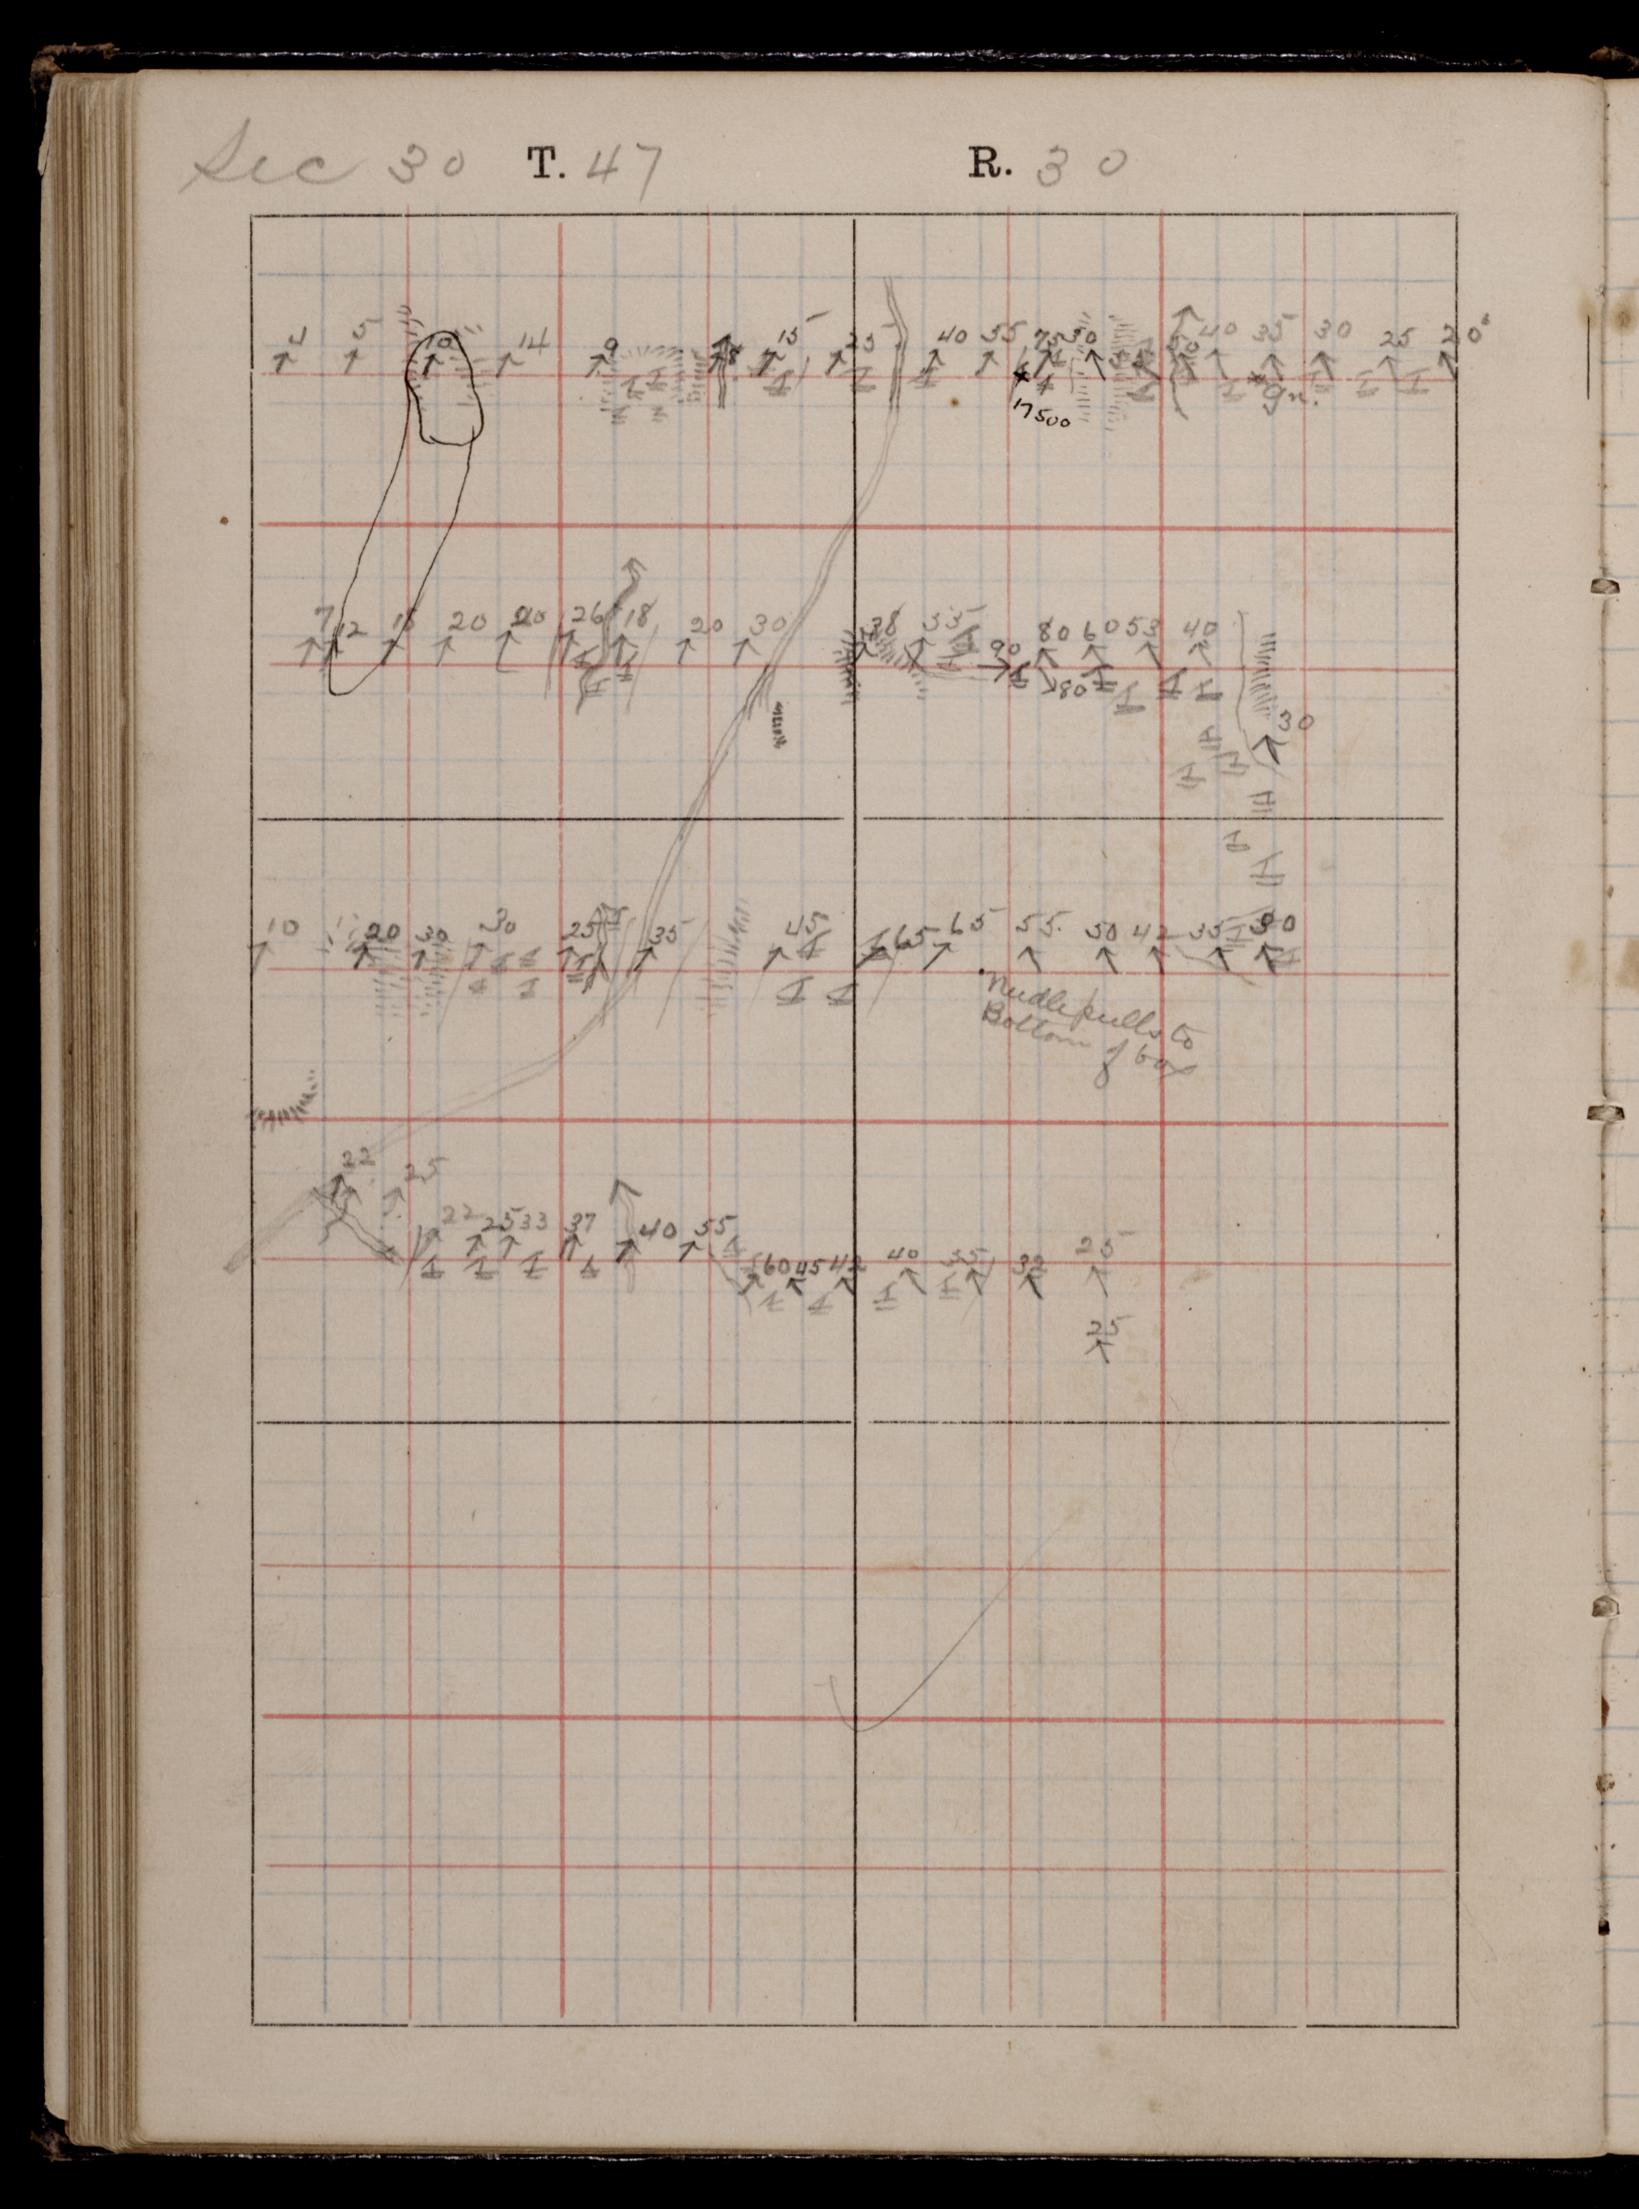 Sec 30 T. 47 R. 30
4 5 10 14 9 15 25 40 55 75 50 40 35 30 25 20°
gn.
17500
7 12 20 20 26 18 20 30 38 35 90 80 60 53 40
80
30
10 20 30 30 25 35 45 65 65 55 50 42 35 30
Needle pulls to
Bottom of box
22 25
22 25 33 37 40 55
60 45 42 40 35 32 25
25